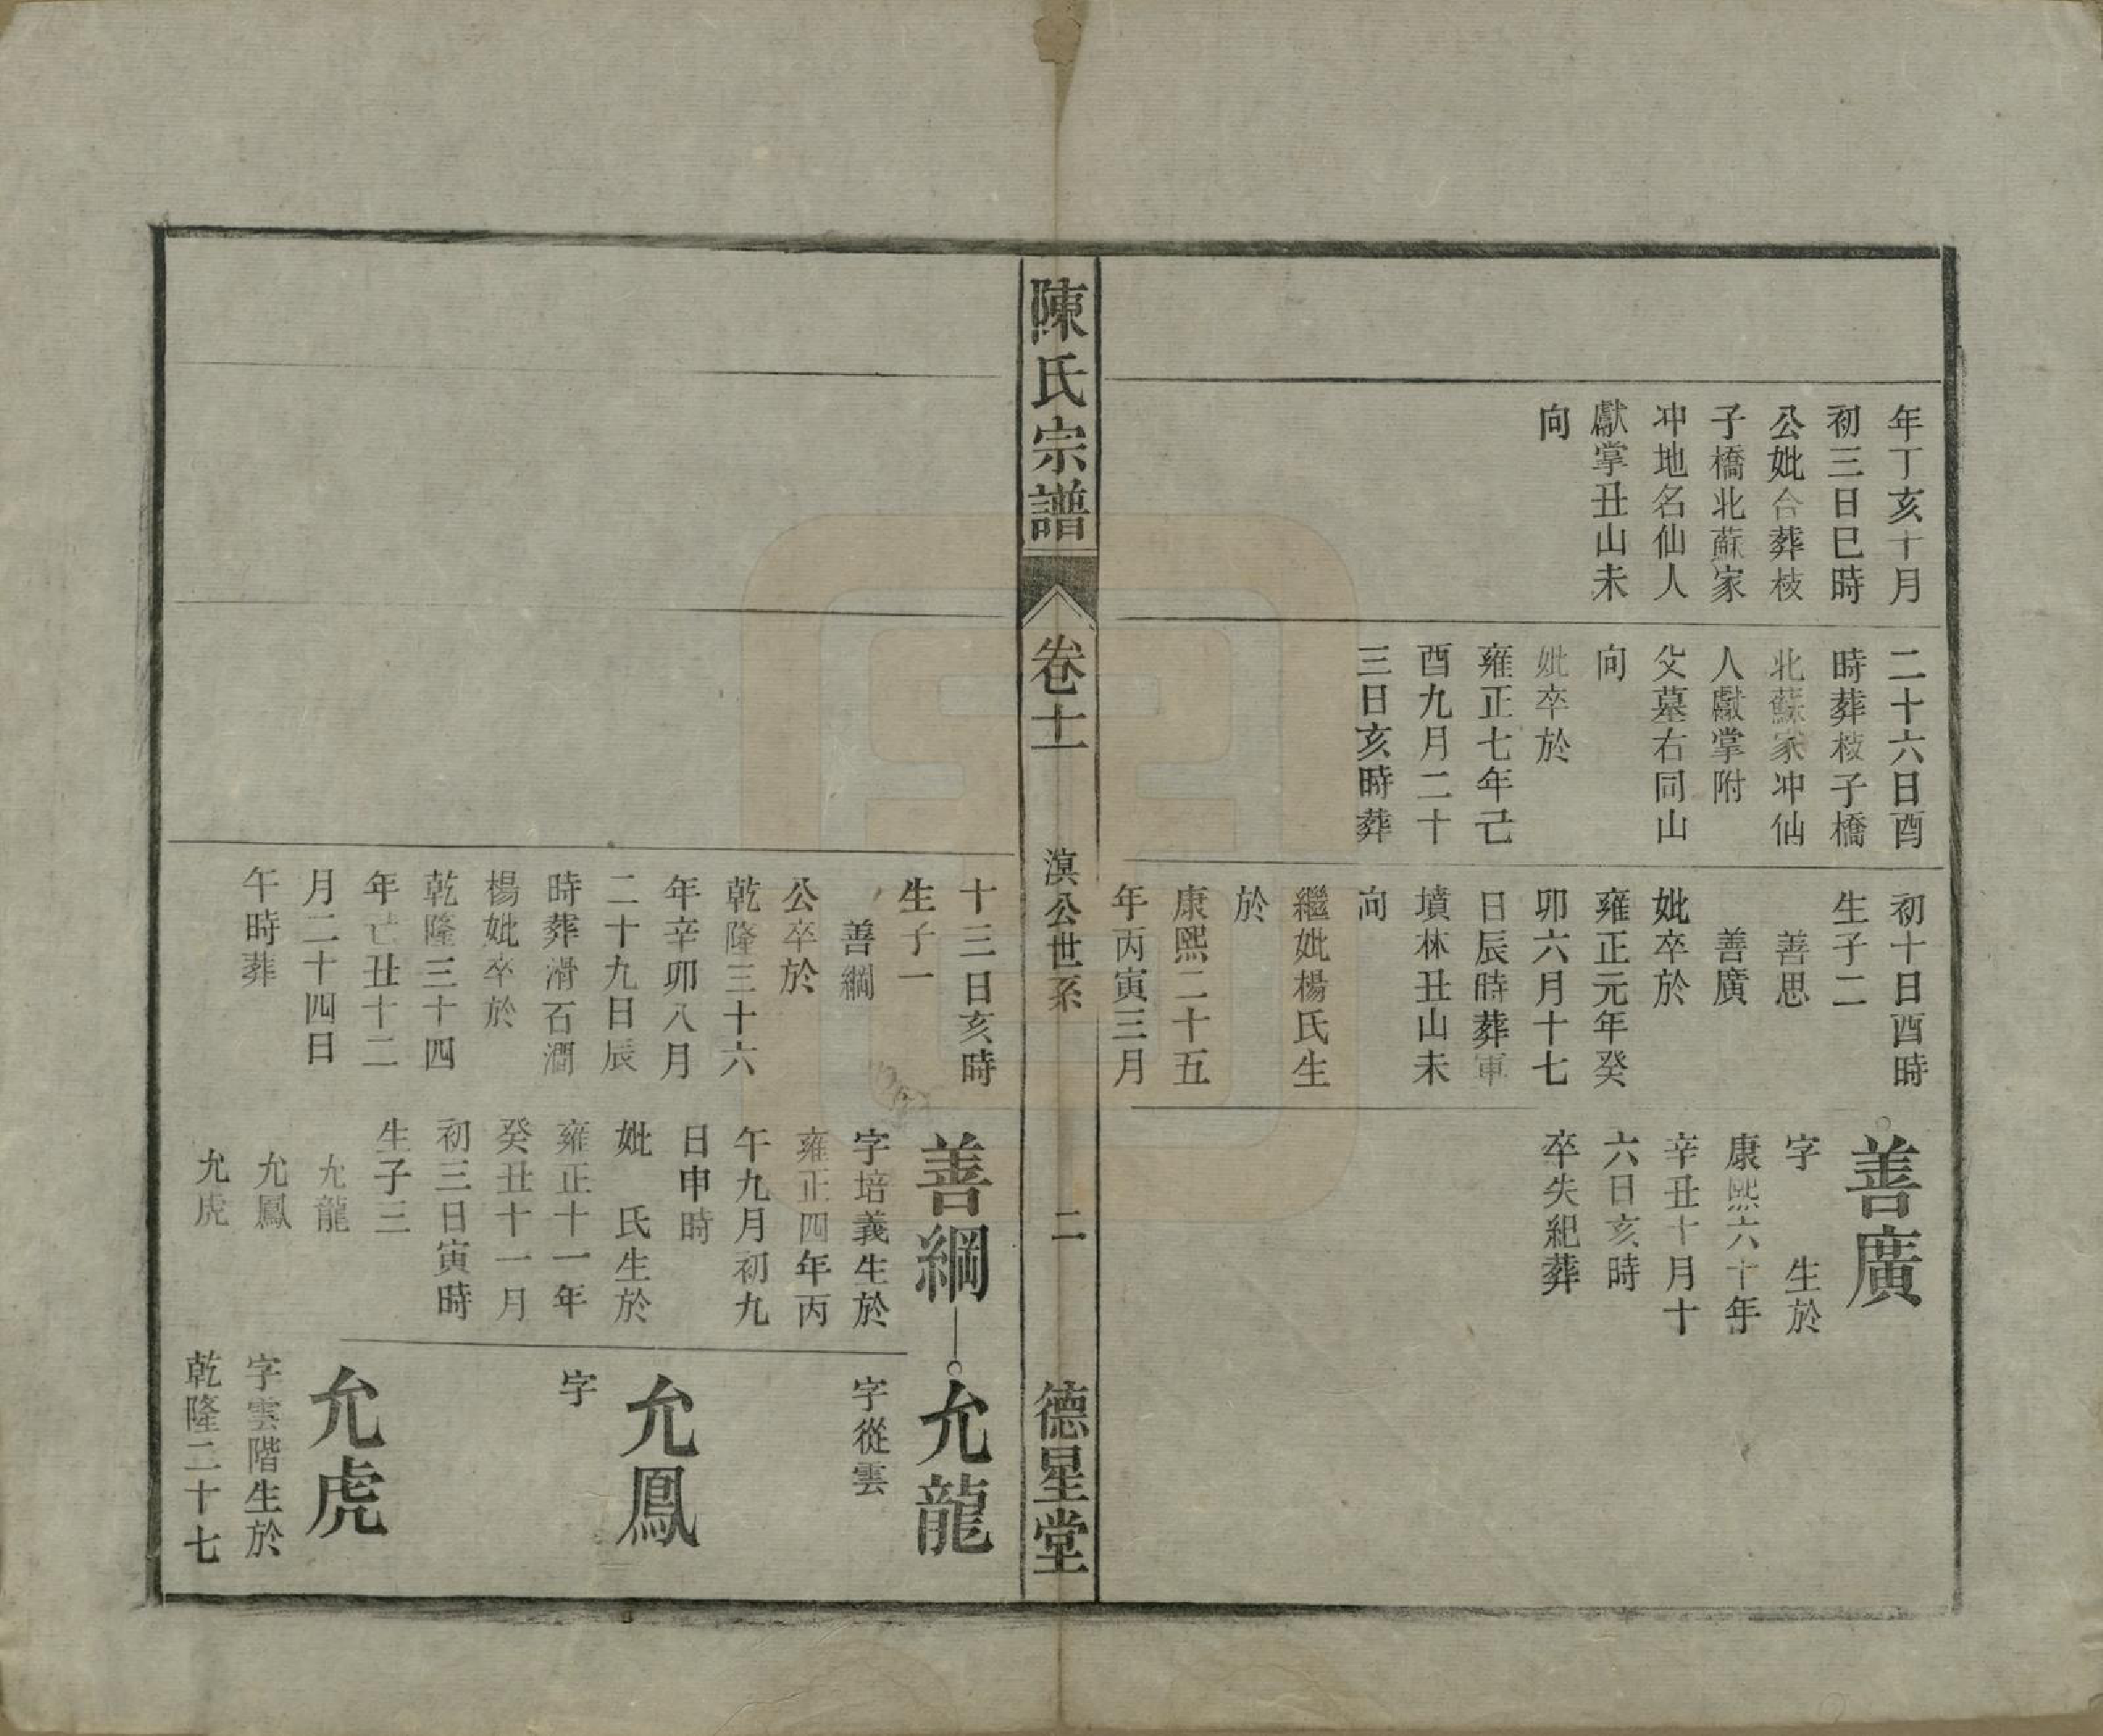 年丁亥十月
初三日巳時
公妣合葬枝
子橋北蘇家
冲地名仙人
獻掌丑山未
向
二十六日酉
時葬枝子橋
北蘇家冲仙
人獻掌附
父墓右同山
向
妣卒於
雍正七年己
酉九月二十
三日亥時葬
初十日酉時
生子二
善思
善廣
妣卒於
雍正元年癸
卯六月十七
日辰時葬軍
墳林丑山未
向
繼妣楊氏生
於
康熙二十五
年丙寅三月
善廣
字 生於
康熙六十年
辛丑十月十
六日亥時
卒失紀葬
陳氏宗譜
卷十一
溟公世系
二
德星堂
十三日亥時
生子一
善綱
公卒於
乾隆三十六
年辛卯八月
二十九日辰
時葬滑石澗
楊妣卒於
乾隆三十四
年己丑十二
月二十四日
午時葬
善綱
字培義生於
雍正四年丙
午九月初九
日申時
妣 氏生於
雍正十一年
癸丑十一月
初三日寅時
生子三
允龍
允鳳
允虎
允龍
字從雲
允鳳
字
允虎
字雲階生於
乾隆二十七